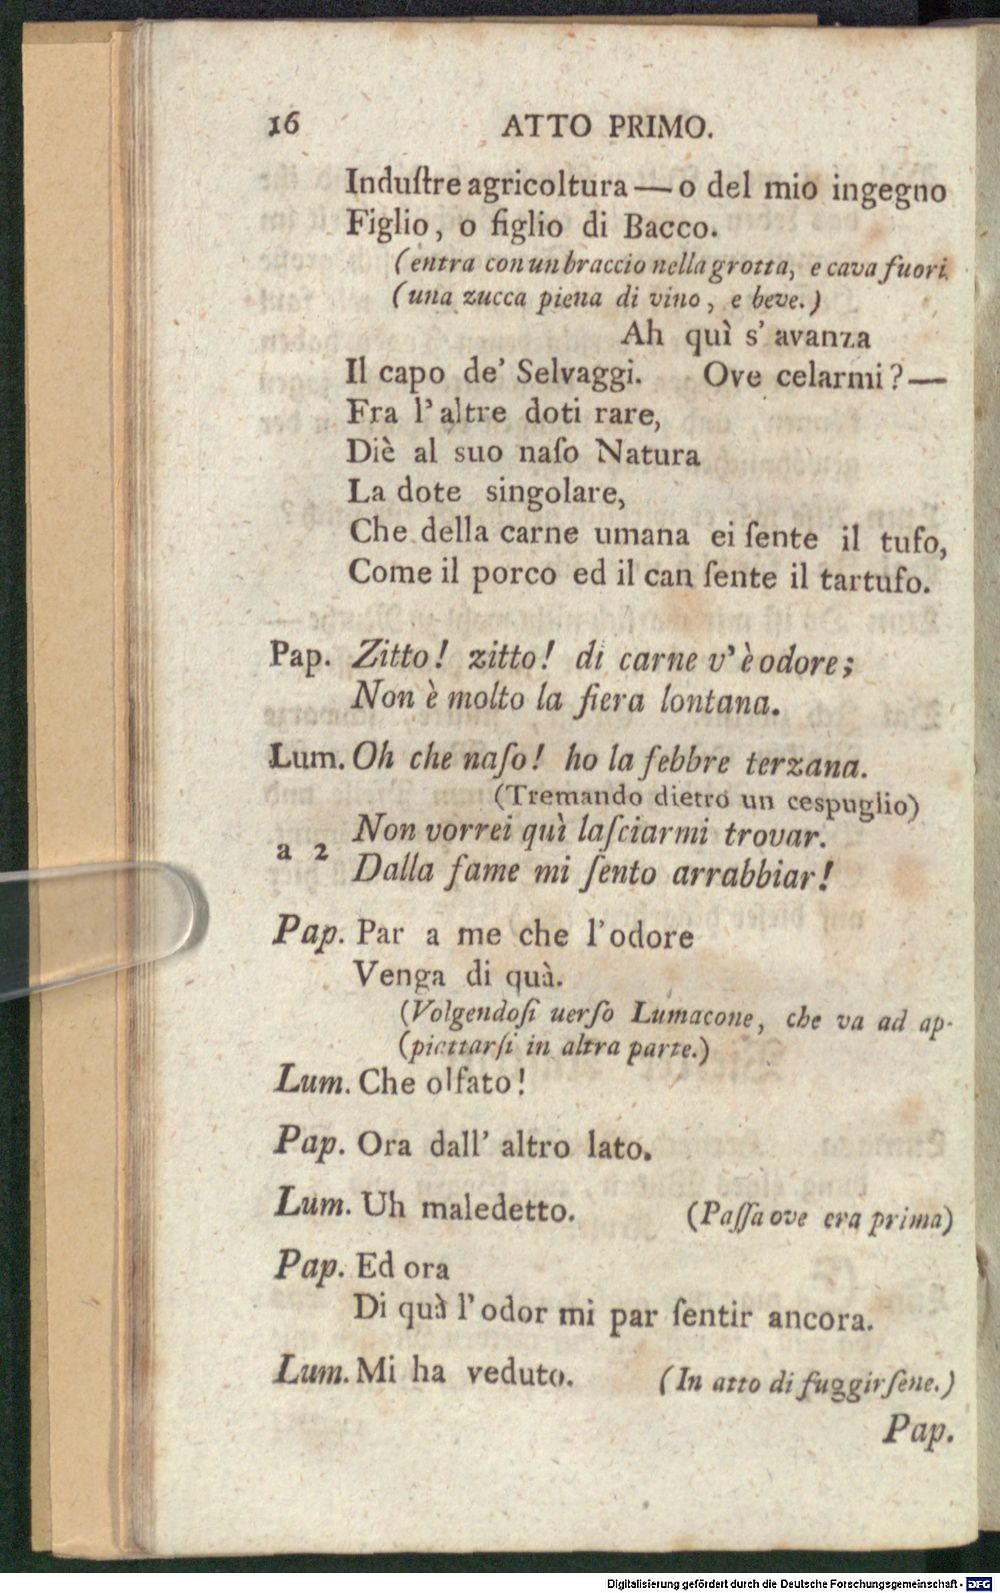 16 ATTO PRIMO.
Induſtre agricoltura — o del mio ingegno
Figlio, o figlio di Bacco.
(entra con un braccio nella grotta, e cava fuori
(una zucca piena di vino, e beve.)
Ah quì s' avanza
Il capo de' Selvaggi. Ove celarmi? —
Fra l' altre doti rare,
Diè al suo naſo Natura
La dote singolare,
Che della carne umana ei ſente il tufo,
Come il porco ed il can ſente il tartufo.
Pap. Zitto! zitto! di carne v' è odore;
Non è molto la fiera lontana.
Lum. Oh che naſo! ho la febbre terzana.
(Tremando dietro un cespuglio)
Non vorrei quì laſciarmi trovar.
a 2
Dalla fame mi ſento arrabbiar!
Pap. Par a me che l' odore
Venga di quà.
(Volgendoſi uerſo Lumacone, che va ad ap-
(piattarſi in altra parte.)
Lum. Che olfato!
Pap. Ora dall' altro lato.
Lum. Uh maledetto. (Paſſa ove era prima)
Pap. Ed ora
Di quà l' odor mi par ſentir ancora.
Lum. Mi ha veduto. (In atto di fuggirſene.)
Pap.
Digitalisierung gefördert durch die Deutsche Forschungsgemeinschaft - DFG